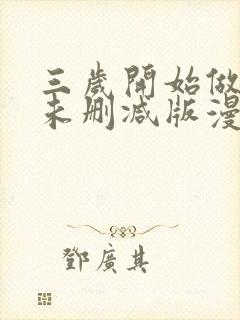 三歲開始做
未删减版漫
鄧廣其